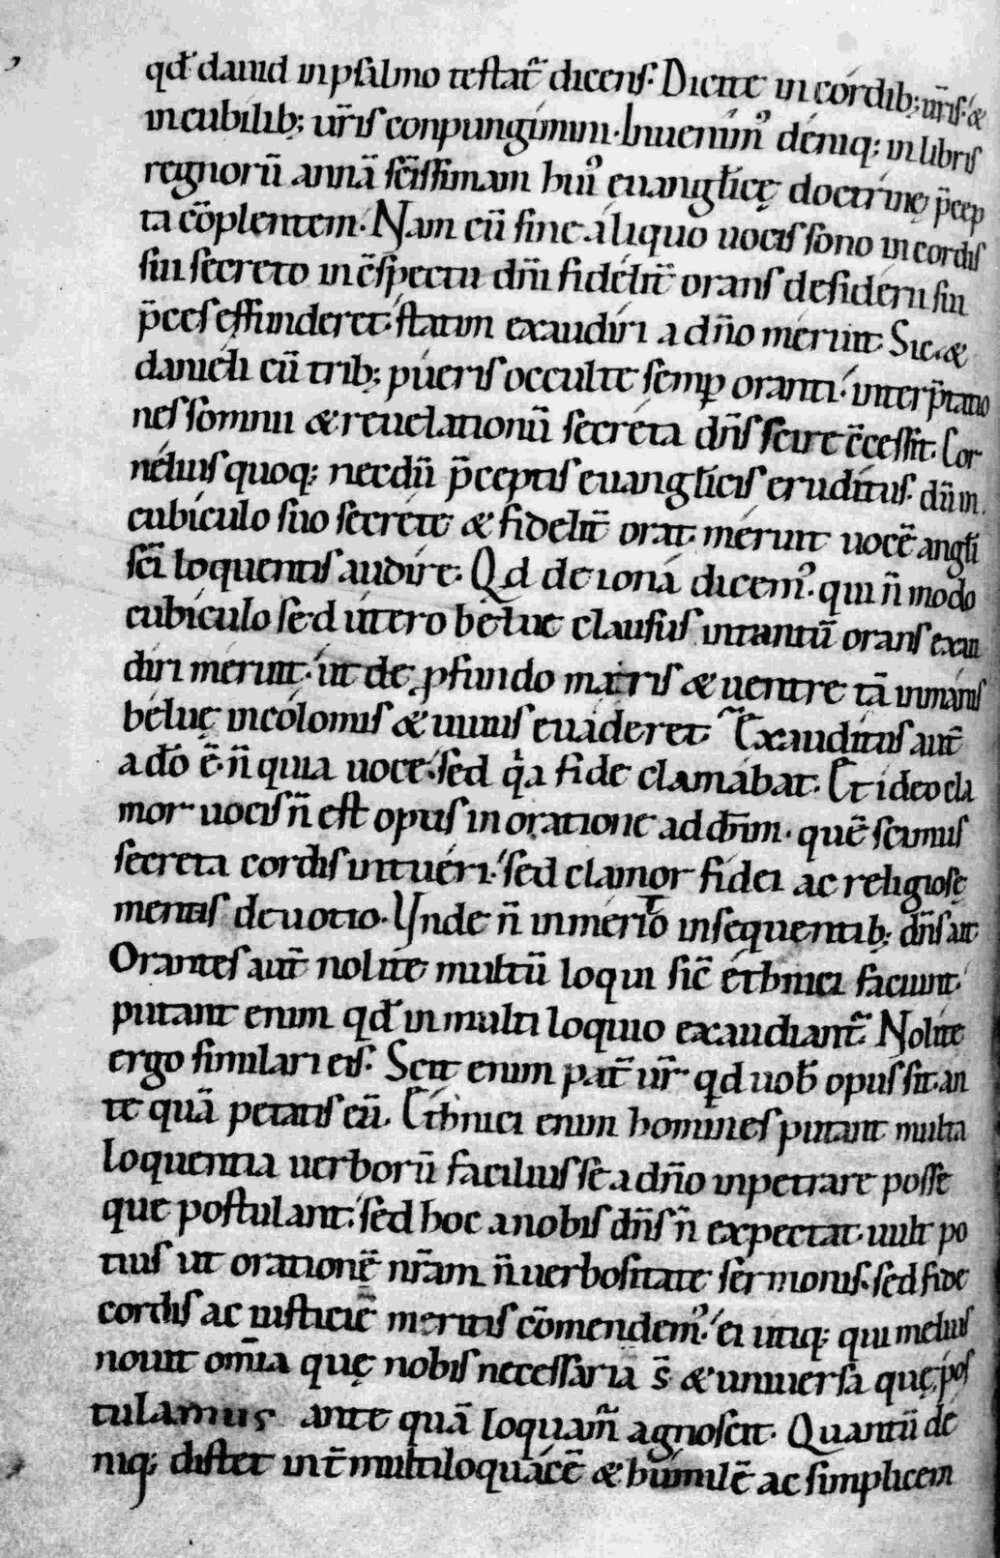 qđ dauid in psalmo testat᷑ dicens. Dicite in cordib; ur̄is. &
in cubilib; ur̄is conpungimini. Inuenim᾽ deniq; in libris
regnorū annā sc̄issimam hui᾽ euangl̄icę doctrinę p̄cep
ta cōplentem. Nam cū sine aliquo uocis sono in cordis
sui secreto in c̄spectu dn̄i fidelit᷑ orans desiderii sui
p̄ces effunderet. statim exaudiri a dn̄o meruit. Sic &
danieli cū trib; pueris occulte semꝑ oranti. interp̄tatio
nes somnii & reuelationū secreta dn̄s scire c̄cessit. Cor
nelius quoq; necdū p̄ceptis euangl̄icis eruditus. dū in
cubiculo suo secrete & fidelit᷑ orat. meruit uocē angl̄i
sc̄i loquentis audire. Qd de iona dicem᾽. qui n̄ modo
cubiculo sed utero beluę clausus intantū orans exau
diri meruit. ut de ꝓfundo maris & uentre tā inmanis
beluę incolomis & uiuus euaderet. Exauditus aut̄
a dō ē. n̄ quia uoce. sed qͥa fide clamabat. Et ideo cla
mor uocis n̄ est opus in oratione ad dn̄m. quē scimus
secreta cordis intueri. sed clamor fidei ac religiosę
mentis deuotio. Unde n̄ inmerito insequentib; dn̄s ait
Orantes aut̄ nolite multū loqui sic̄ ethnici faciunt.
putant enim qđ in multiloquio exaudiant᷑. Nolite
ergo similari eis. Scit enim pat᷑ ur̄ qd uob̄ opus sit. an
te quā petatis eū. Ethnici enim homines putant multa
loquentia uerborū facilius se a dn̄o inpetrare posse
que postulant. sed hoc a nobis dn̄s n̄ expectat. uult po
tius ut orationē nr̄am n̄ uerbositate sermonis. sed fide
cordis ac iusticię meritis cōmendem᾽. ei utiq; qui melius
nouit om̄ia quę nobis necessaria s̄ & uniuersa quę pos
tulamus ante quā loquam̄ agnoscit. Quantū de
niq; distet int̄ multiloquacē & humilē ac simplicem